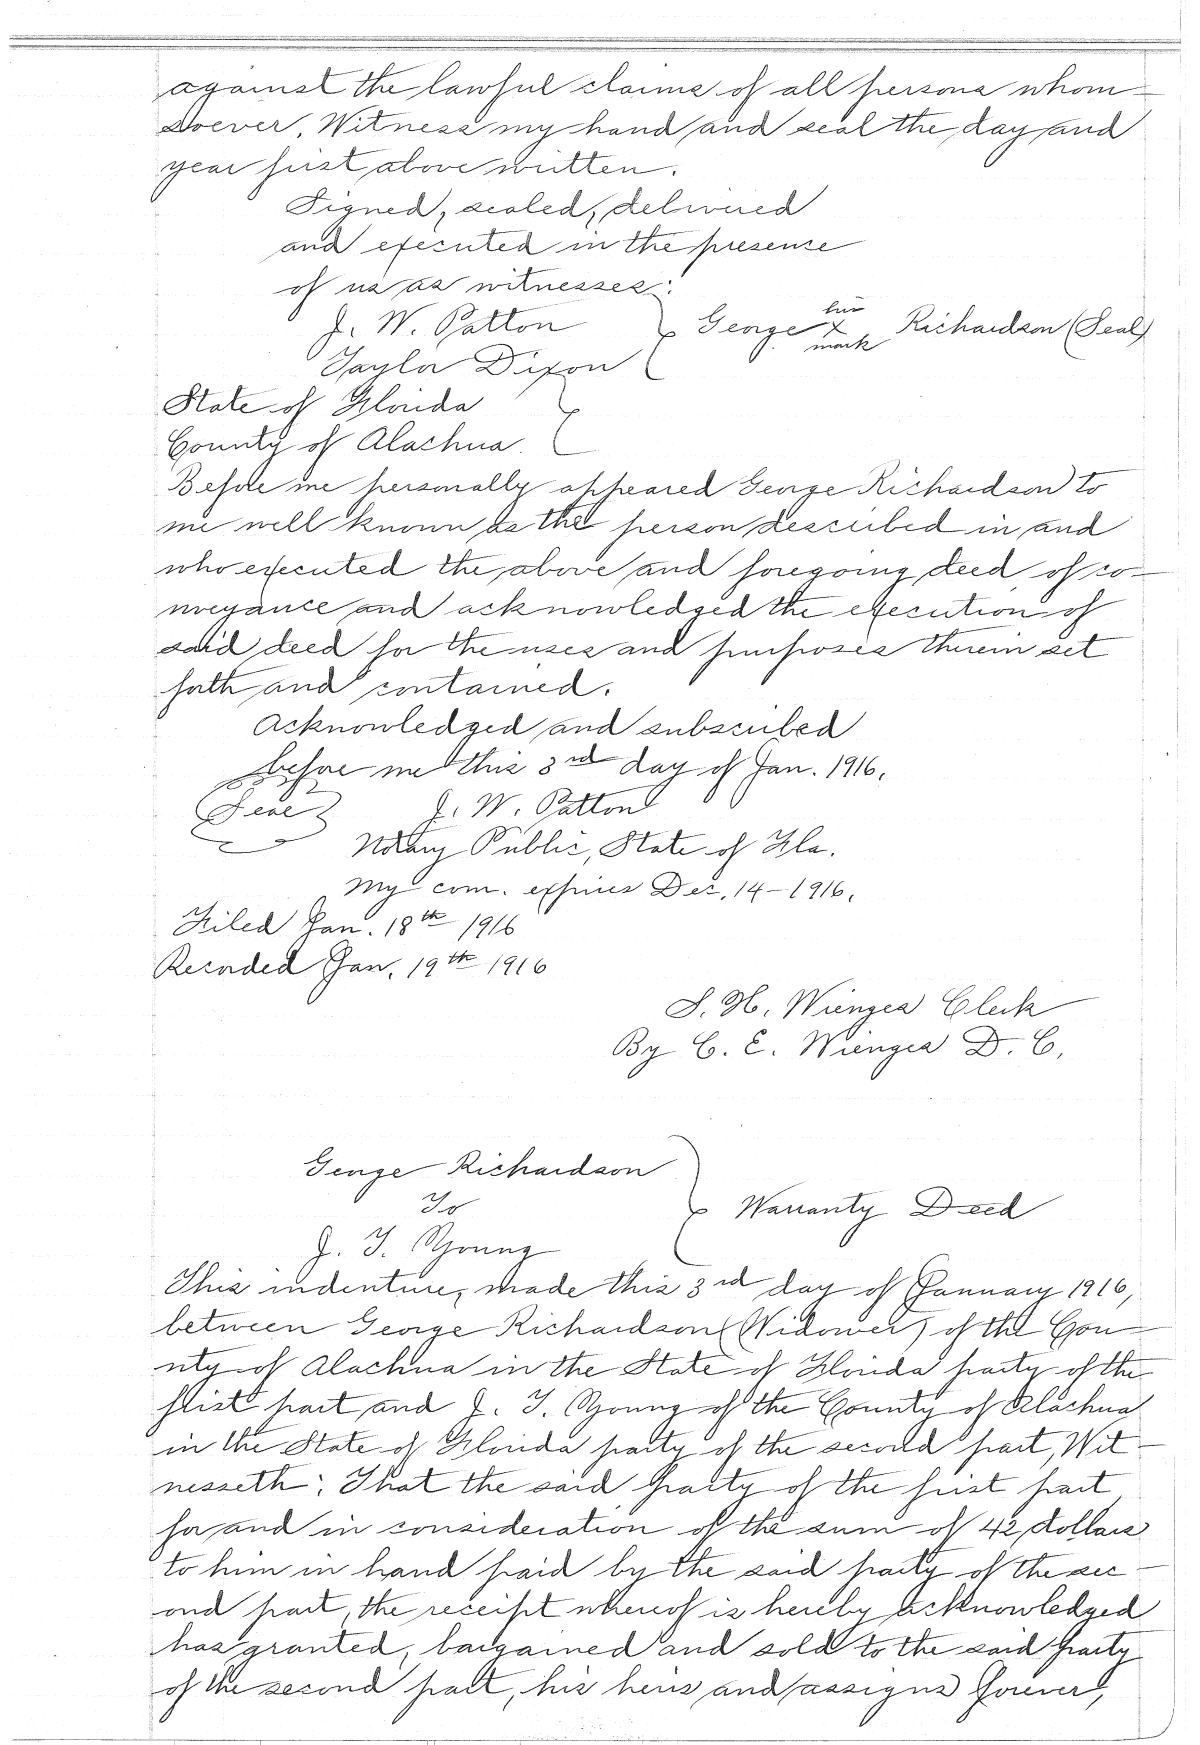 against the lawful claims of all persons whom-
soever. Witness my hand and seal the day and
year first above written.
Signed, sealed, delivered
and executed in the presence
of us as witnesses:
J. W. Patton } George his X mark Richardson (Seal)
Taylor Dixon
State of Florida }
County of Alachua.
Before me personally appeared George Richardson to
me well known as the person described in and
who executed the above and foregoing deed of co-
nveyance and acknowledged the execution of
said deed for the uses and purposes therein set
forth and contained.
Acknowledged and subscribed
before me this 3rd day of Jan. 1916.
(Seal) J. W. Patton
Notary Public, State of Fla.
My com. expires Dec. 14-1916.
Filed Jan. 18th 1916
Recorded Jan. 19th 1916
S. H. Wienges Clerk
By C. E. Wienges D. C.
George Richardson
To } Warranty Deed
J. T. Young
This indenture, made this 3rd day of January 1916,
between George Richardson (Widower) of the Cou-
nty of Alachua in the State of Florida party of the
first part and J. T. Young of the County of Alachua
in the State of Florida party of the second part, Wit-
nesseth; That the said party of the first part
for and in consideration of the sum of 42 dollars
to him in hand paid by the said party of the sec-
ond part, the receipt whereof is hereby acknowledged
has granted, bargained and sold to the said party
of the second part, his heirs and assigns forever,